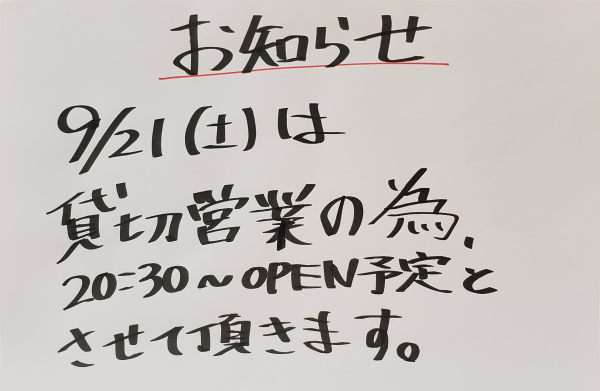 お知らせ
9/21(土)は
貸切営業の為、
20:30~OPEN予定と
させて頂きます。